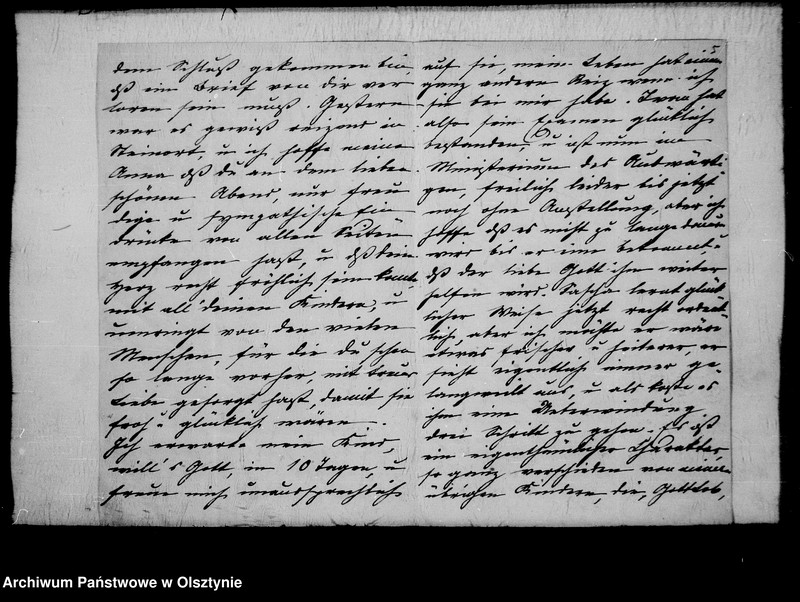 dem Schluß gekommen bin,
dß ein Brief von dir ver
loren sein muß. Gestern
war es gewiß reizend in
Steinort, u ich hoffe meine
Anna dß du an dem lieben
schönen Abend, nur freu
dige u sympathische Ein
drücke von allen Seiten
empfangen hast, u dß dein
Herz recht fröhlich sein konnte
mit all' deinen Kindern, u
umringt von den vielen
Menschen, für die du schon
so lange vorher mit treuer
Liebe gesorgt hast, damit sie
froh u glücklich wären.
Ich erwarte mein Kind,
will's Gott, in 10 Tagen, u
freue mich unaussprechlich
auf sie, mein Leben hat einen
ganz andern Reiz wenn ich
sie bei mir habe. Iwan hat
also sein Examen glücklich
bestanden, u ist nun im
Ministerium des Auswärti
gen, freilich leider bis jetzt
noch ohne Anstellung, aber ich
hoffe dß es nicht zu lange dauern
wird bis er ihn bekommt, u
dß der liebe Gott ihm weiter
helfen wird. Sascha lernt glück
licher Weise jetzt recht ordent
lich, aber ich möchte er wäre
etwas frischer u heiterer, er
sieht eigentlich immer ge-
langweilt aus, u als koste es
ihm eine Ueberwindung
drei Schritt zu gehen. Es ist
ein eigenthümlicher Charakter,
so ganz verschieden von meinen
übrigen Kindern, die, Gottlob,
Archiwum Państwowe w Olsztynie